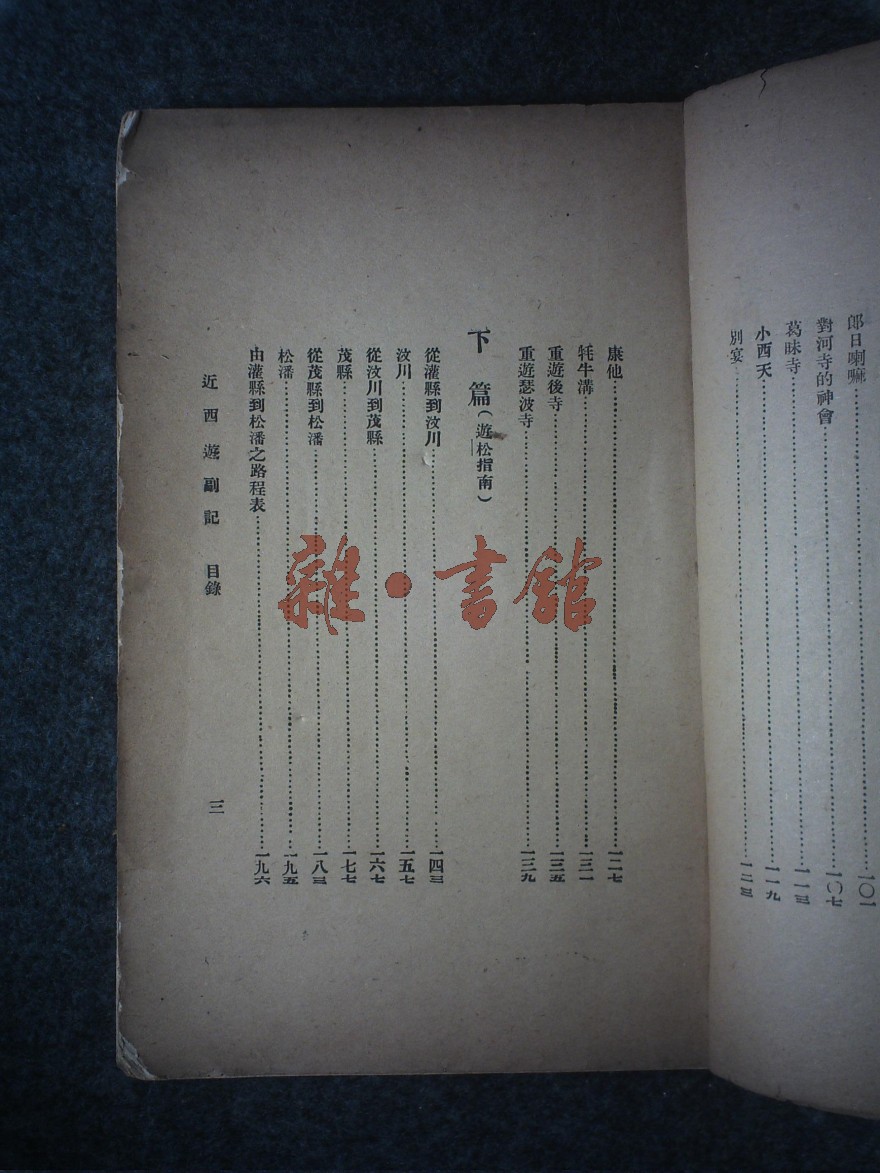 郎日喇嘛⋯⋯⋯⋯一〇一
對河寺的神會⋯⋯⋯⋯一〇七
葛昧寺⋯⋯⋯⋯一一三
小西天⋯⋯⋯⋯一一九
別宴⋯⋯⋯⋯一二三
康他⋯⋯⋯⋯一二七
牦牛溝⋯⋯⋯⋯一三一
重遊後寺⋯⋯⋯⋯一三五
重遊瑟波寺⋯⋯⋯⋯一三九
下篇(遊松指南)
從灌縣到汶川⋯⋯⋯⋯一四三
汶川⋯⋯⋯⋯一五七
從汶川到茂縣⋯⋯⋯⋯一六七
茂縣⋯⋯⋯⋯一七七
從茂縣到松潘⋯⋯⋯⋯一八三
松潘⋯⋯⋯⋯一九五
由灌縣到松潘之路程表⋯⋯⋯⋯一九六
近西遊副記 目錄 三
雜·書館